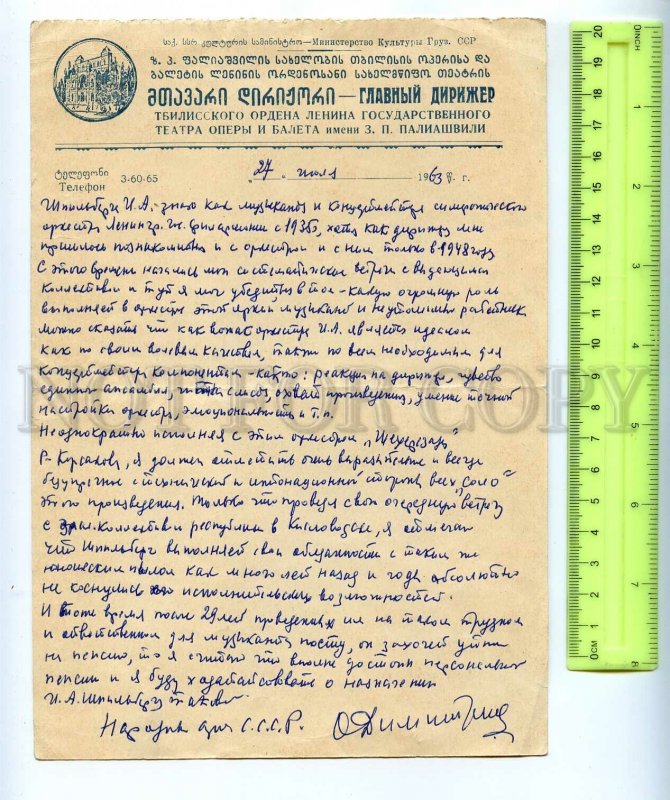 საქ. სსრ კულტურის სამინისტრო—Министерство Культуры Груз. ССР
ზ. პ. ფალიაშვილის სახელობის თბილისის ოპერისა და
ბალეტის ლენინის ორდენოსანი სახელმწიფო თეატრის
მთავარი დირიჟორი—ГЛАВНЫЙ ДИРИЖЕР
ТБИЛИССКОГО ОРДЕНА ЛЕНИНА ГОСУДАРСТВЕННОГО
ТЕАТРА ОПЕРЫ И БАЛЕТА имени З. П. ПАЛИАШВИЛИ
ტელეფონი
Телефон 3-60-65
„27" июля 1963 წ. г.
Шпильберг И.А. знаю как музыканта и концертмейстера симфонического
оркестра Ленингр. Гос. филармонии с 1935г, хотя как дирижеру мне
пришлось познакомиться и с оркестром и с ним только в 1948 году
С этого времени начались мои систематические встречи с выдающимся
коллективом и тут я мог убедиться в том - какую огромную роль
выполняет в оркестре этот яркий музыкант и неутомимый работник
можно сказать что как вожак оркестра И.А. является идеалом
как по своим волевым качествам, так и по всем необходимым для
концертмейстера компонентам - как то: реакция на дирижера, чувство
единого ансамбля, охват произведения, умение точной
настройки оркестра, эмоциональность и т.п.
Неоднократно исполняя с этим оркестром „Шехеразаду"
Р-Корсакова, я должен отметить очень выразительные и всегда
безупречные с технической и интонационной стороны всех „Соло"
этого произведения. Только что проведя свою очередную встречу
с коллективом республики в Кисловодске, я отмечал
что Шпильберг выполняет свои обязанности с таким же
юношеским пылом как много лет назад и года абсолютно
не коснулись его исполнительских возможностей.
И в тоже время после 29 лет проведенных им на таком трудном
и ответственном для музыканта посту, он захочет уйти
на пенсию, то я считаю что вполне достоин персональной
пенсии и я буду ходатайствовать о назначении
И.А. Шпильбергу таковой.
Народный арт С.С.С.Р. ОДимитриади
NOT FOR COPY
INCH
0 1 2 3 4 5 6 7 8
20 19 18 17 16 15 14 13 12 11 10 9 8 7 6 5 4 3 2 1 0CM